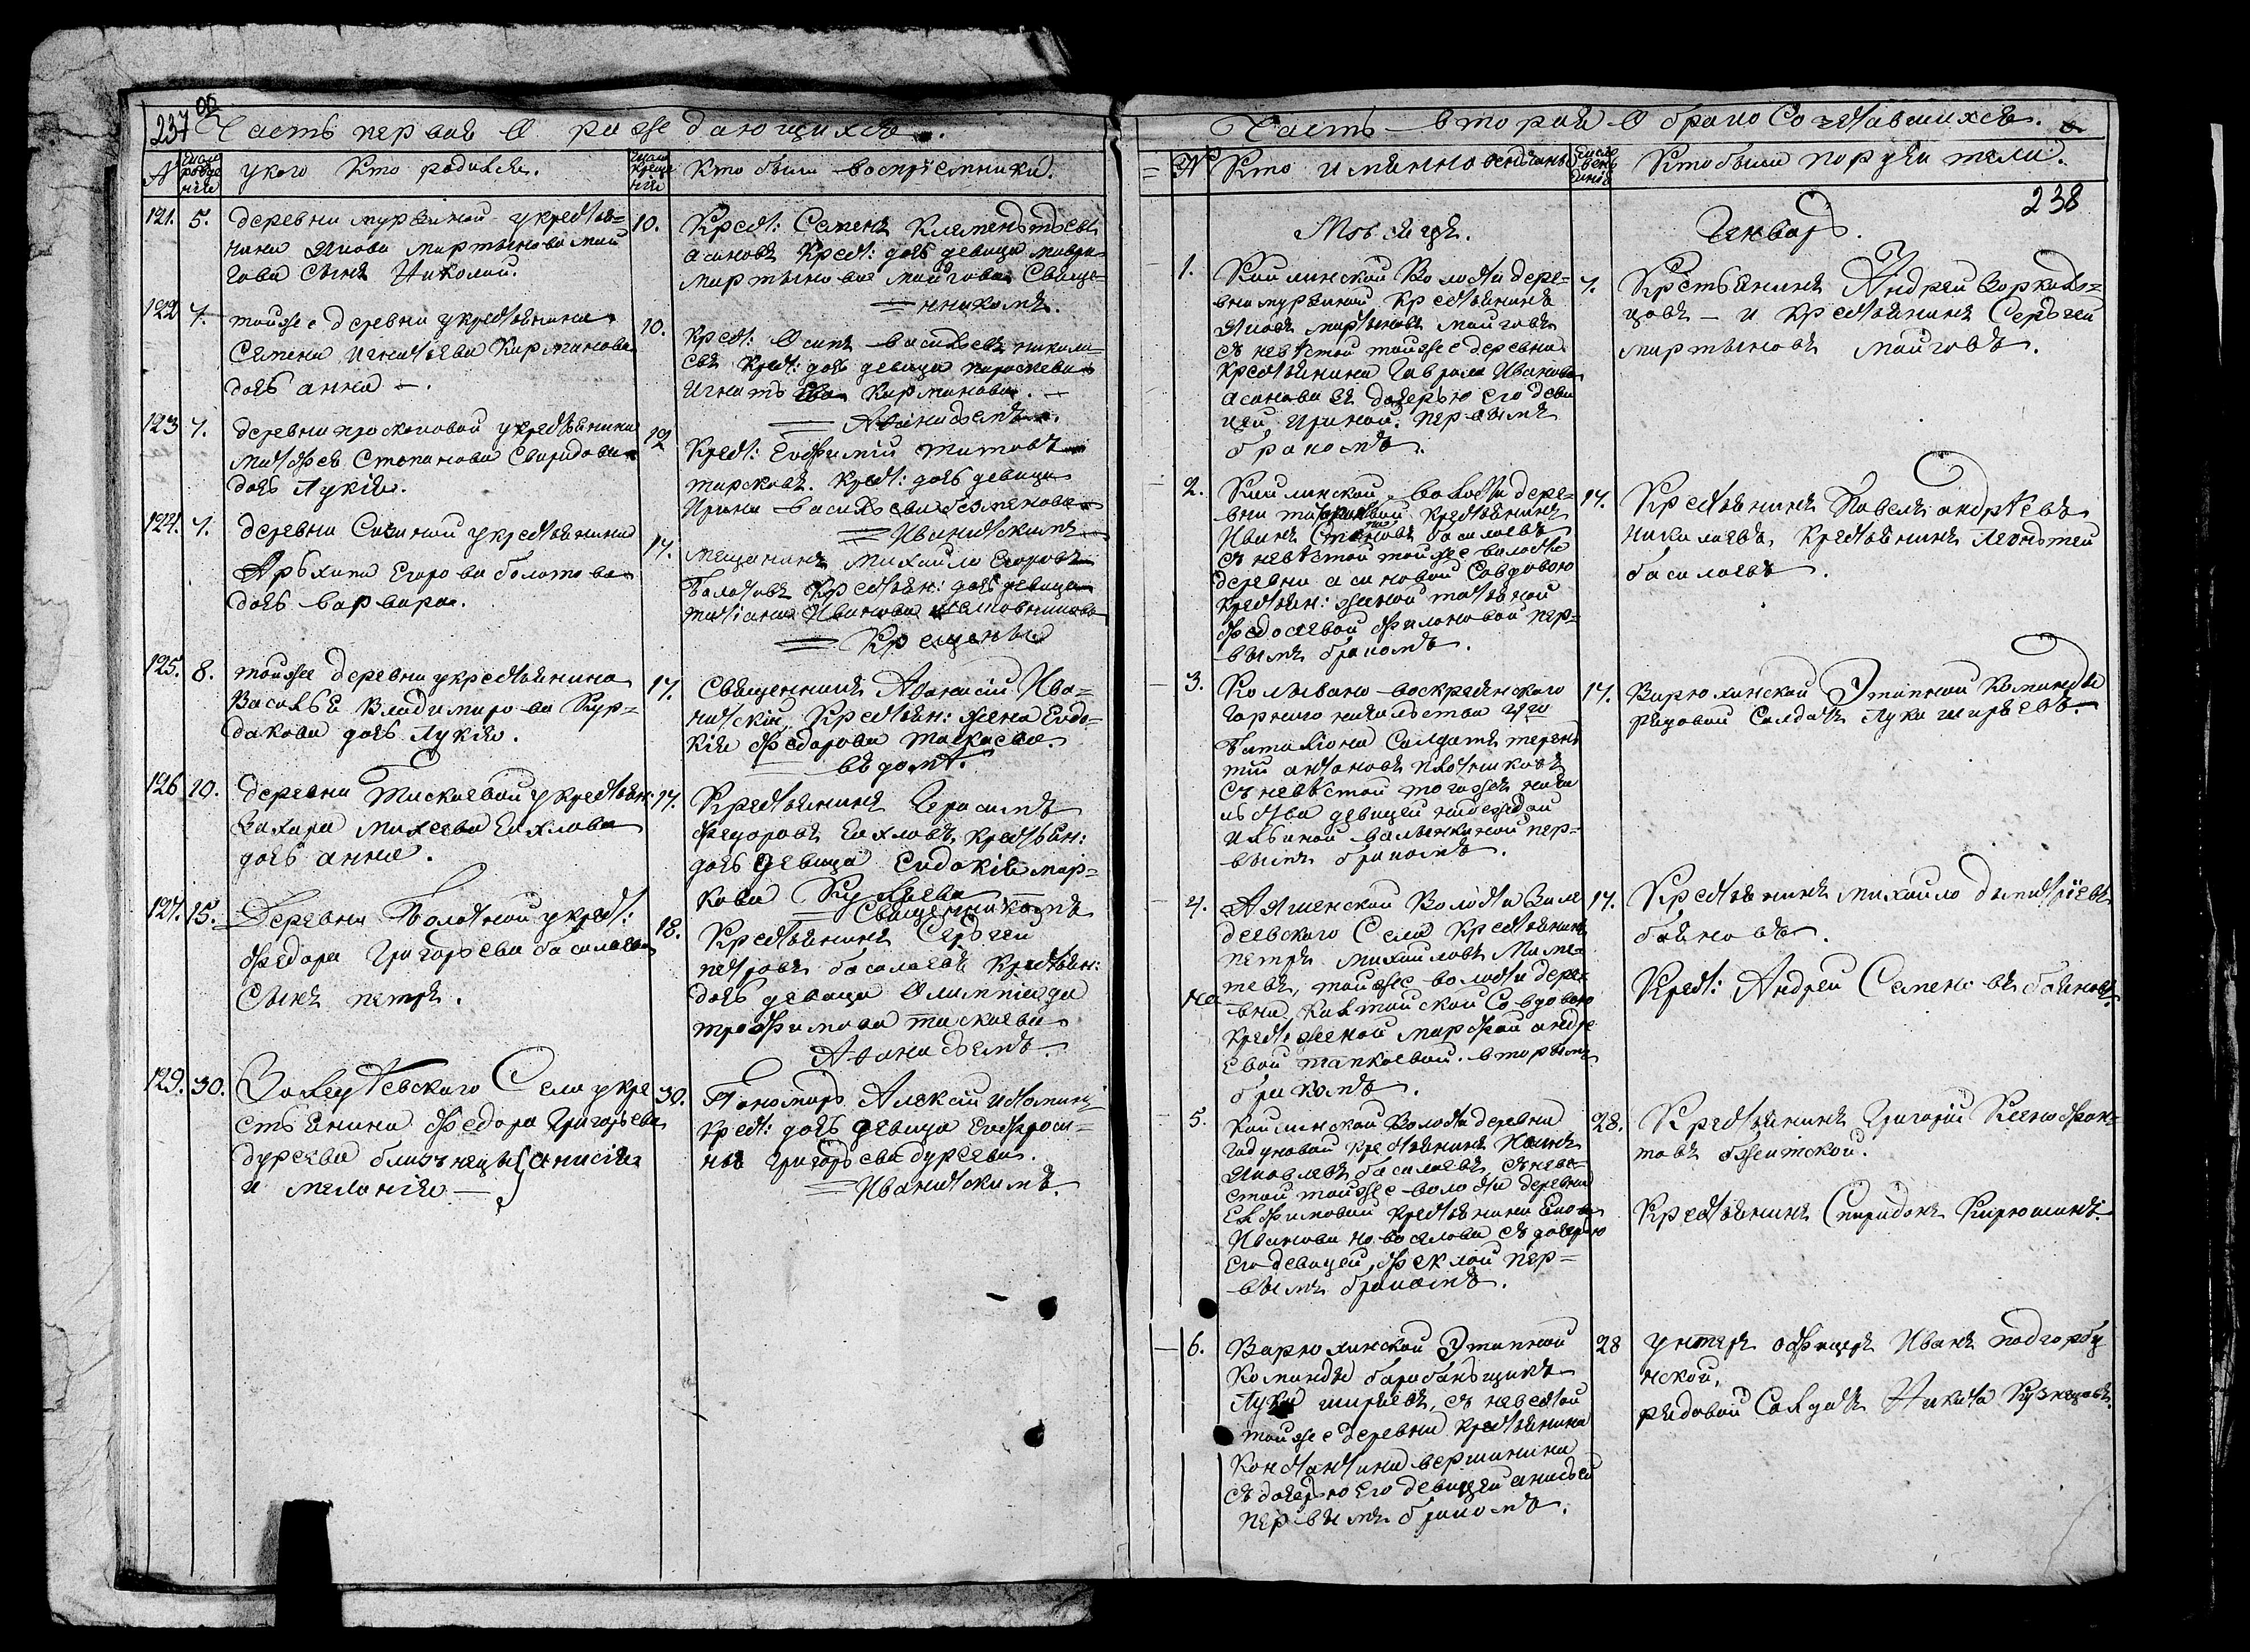 237 об
Часть первая О раждающихся.
№
число рожденія
у кого Кто родился.
число крещенія
Кто были воспріемники.
121. 5. деревни мурзиной у крестья=
нина Якова мартынова май
гова Сынъ Николай.
10. Крест: Семенъ Клементьевъ
асановъ Крест: дочь девица мавра
мартынова майгова Свяще=
=нникомъ.
122 7. тойже деревни у крестьянина
Семена Игнатьева Карманова
дочь анна —.
10. Крест: Осипъ васильевъ никола=
евъ Крест: дочь девица параскева
Игнатьева Карманова. —
= Афанасьемъ.
123 7. деревни проскоковой у крестьянина
Матфея Степанова Свиридова
дочь Лукія.
12 Крест: Евфимій титовъ
тарсковъ. Крест: дочь девица
Ирина васильева безменова
= Иваницкимъ
124. 7. деревни Сизиной у крестьянина
Архипа Егорова болотова
дочь варвара.
17. мещанинъ Михайло Егоровъ
Болотовъ Крестьян: дочь девица
татіана Иванова
= Крещены
125. 8. тойже деревни у крестьянина
Василья Владимирова Кур=
дакова дочь Лукія.
17. Священникъ Афанасій Ива=
ницкій, Крестьян: жена Евдо=
кія федорова таскаева.
въ домѣ.
126 10. деревни Таскаевой у крестьян:
Захара Михеева Еахлова
дочь анна.
17. Крестьянинъ Герасимъ
федоровъ Еахловъ, крестьян:
дочь девица Евдокія мар=
кова
Священникомъ
127. 15. Деревни Болотной у крест:
федора Григорьева басалаева
Сынъ петръ.
18. Крестьянинъ Сергей
петровъ басалаевъ Крестьян:
дочь девица Олимпіада
трофимова таскаева
Афанасьемъ.
129. 30. Зале​дѣевского Села у кре
стьянина федора Григорьева
дурсева близънецы анисія
и меланія —
30. Пономарь Алексій
Крест: дочь девица Евфроси=
нья Григорьева дурсева.
= Иваницкимъ.
Часть вторая О бракоСочетавшихся.
№ Кто имянно венчаны
число венчанія
Кто были поручители.
238
Мѣсяцъ. Генварь.
1. Кайлинской Волости дере=
вни мурзиной крестьянинъ
Яковъ мартыновъ майговъ
съ невѣстой тойже деревни
крестьянина Гаврила Иванова
асанова съ дочерью его деви
цей Ириной. первымъ
бракомъ.
7. Крестьянинъ Андрей
цовъ — и Крестьянинъ Сергей
мартыновъ майговъ.
2. Кайлинской волости дере=
вни крестьянинъ
Иванъ басалаевъ
съ невѣстой тойже волости
деревни асановой Совдовою
крестьян: женой татьяной
федосеевой филоновой пер=
вымъ бракомъ.
17. Крестьянинъ Павелъ андрѣевъ
николаевъ, Крестьянинъ Леонтей
басалаевъ.
3. Колывано воскресенского
Горного начальства
Баталіона Салдатъ терень
тій антоновъ плотниковъ
съ невѣстой тогоже нача
льства девицей надеждой
Ильиной вальинкиной пер=
вымъ бракомъ.
17. Варюхинской Этапной Команды
рядовой Салдатъ Лука ширяевъ.
4. Аяшенской Волости
деевского Села Крестьянинъ
петръ Михайловъ
тойже волости дере
вни, Калтайской Со вдовою
крест: женой марфой андре
евой тапкаевой. вторымъ
бракомъ.
17. Крестьянинъ михайло дмитріевъ
баяновъ.
Крест: Андрей Семеновъ баяновъ
5. Каилинской волости деревни
Гадуновой крестьянинъ Иванъ
Яковлевъ басалаевъ, съ неве=
стой тойже волости деревни
Елфимовой крестьянина Екова
Иванова новоселова съ дочерью
его девицей феклой пер=
вымъ бракомъ.
28. Крестьянинъ Григорій Ксенофон=
товъ
Крестьянинъ Спиридонъ Кирюшинъ.
6. Варюхинской Этапной
Команды барабаньщикъ
Лука ширяевъ, съ невестой
тойже деревни крестьянина
Константина вершинина
съ дочерью его девицей анисьей
первымъ бракомъ.
28 унтеръ офицеръ Иванъ подгорбу
нской,
рядовой Салдатъ Никита Кузнецовъ.